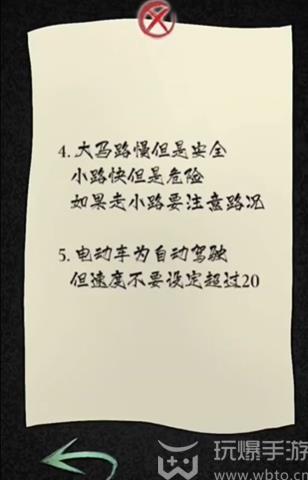 4. 大马路慢但是安全
小路快但是危险
如果走小路要注意路况
5. 电动车为自动驾驶
但速度不要设定超过20
玩爆手游
www.wbto.cn